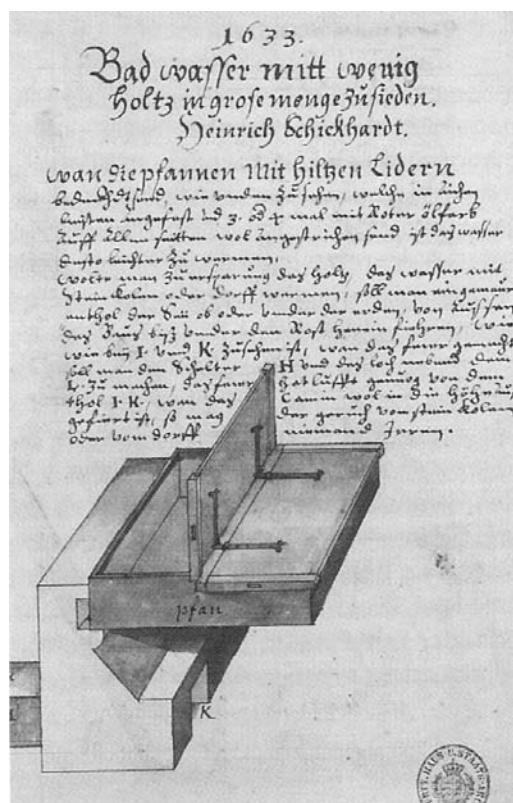 1633.
Bad wasser mitt wenig
holtz in grose menge zu sieden.
Heinrich Schickhardt.
wan die pfannen Mit hiltzen Lidern
wie unden zu sehen, welche in
und 3. od 4 mal mit Roter ölfarb
auff allen seitten wol angestrichen sind ist das wasser
dester leichter zu warmen.
wolte man zu ersparung des holtz, das wasser mit
stein kolen oder dorff warmen, soll man ein gemaur
ob oder under der erden, von aussen
des baus biss under den Rost hinein fiehren,
wie bey I. und K. zu sehen ist, wan das feuer gemacht
soll man den H und das loch neben dem
zu machen, das feuer hat lufft genuog von dem
I. K. wan das Camin wol in die höhe
gefiert ist, so mag der geruch vom stein kolen
oder vom dorff niemand Irren.
pfan
K